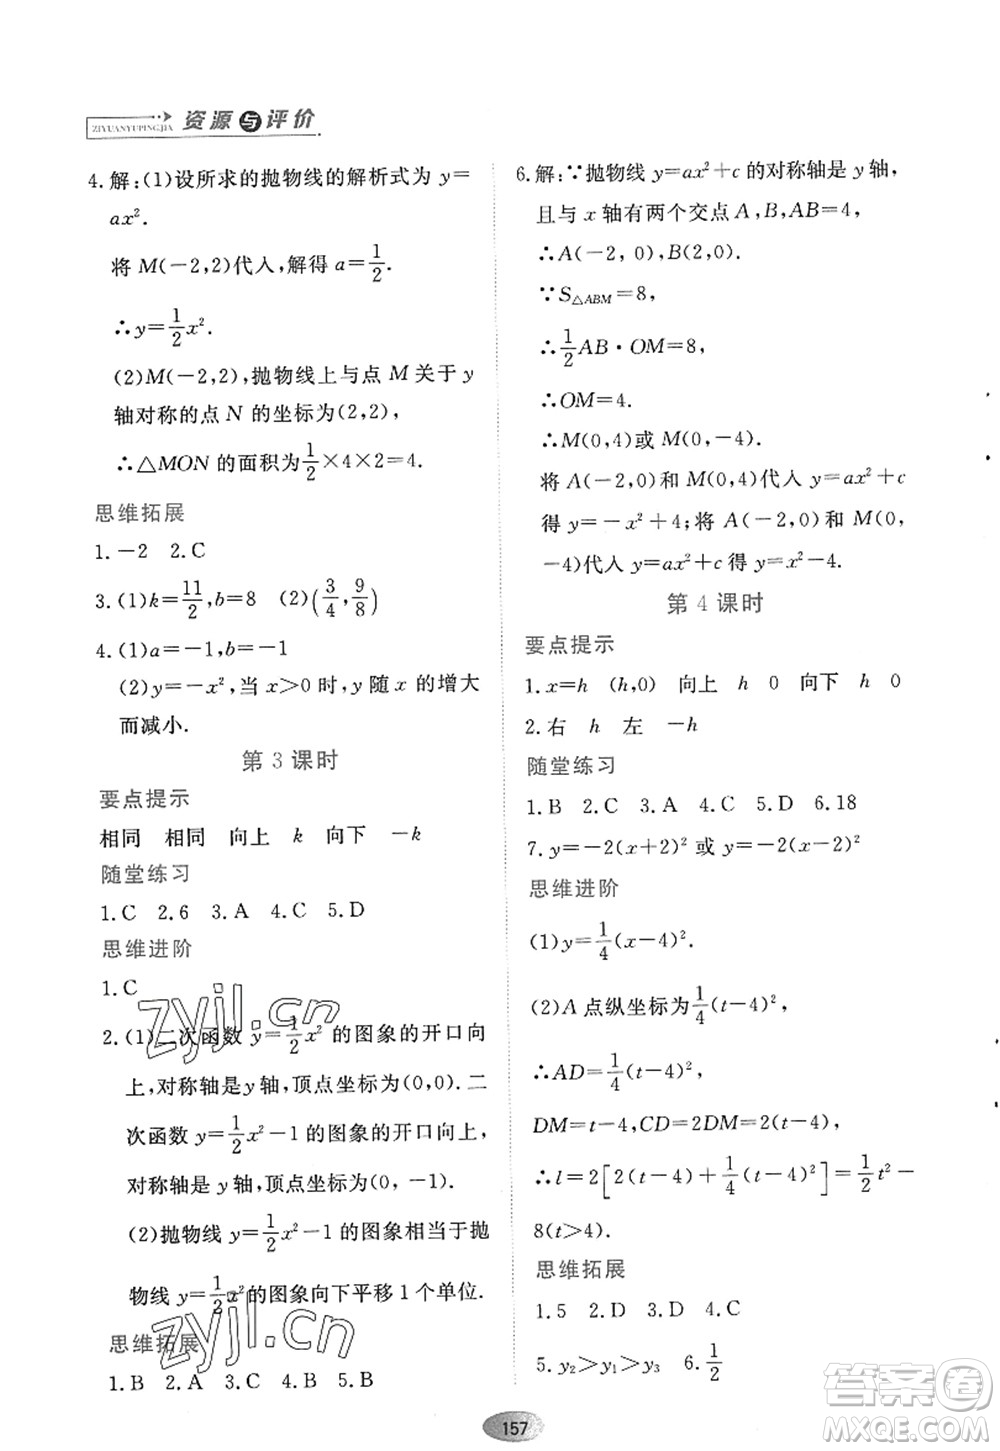 ZIYUANYUPINGJIA 资源与评价
4.解:(1)设所求的抛物线的解析式为 y=
ax².
将 M(-2,2)代入,解得 a=1/2.
∴y=1/2x².
(2)M(-2,2),抛物线上与点 M 关于 y
轴对称的点 N 的坐标为(2,2),
∴△MON 的面积为1/2×4×2=4.
思维拓展
1.-2 2.C
3.(1)k=11/2,b=8 (2)(3/4,9/8)
4.(1)a=-1,b=-1
(2)y=-x²,当 x>0 时,y 随 x 的增大
而减小.
第 3 课时
要点提示
相同 相同 向上 k 向下 -k
随堂练习
1.C 2.6 3.A 4.C 5.D
思维进阶
1.C
2.(1)二次函数 y=1/2x² 的图象的开口向
上,对称轴是 y 轴,顶点坐标为(0,0).二
次函数 y=1/2x²-1 的图象的开口向上,
对称轴是 y 轴,顶点坐标为(0,-1).
(2)抛物线 y=1/2x²-1 的图象相当于抛
物线 y=1/2x²的图象向下平移 1 个单位.
思维拓展
1.B 2.A 3.C 4.A 5.B
6.解:∵抛物线 y=ax²+c 的对称轴是 y 轴,
且与 x 轴有两个交点 A,B,AB=4,
∴A(-2,0),B(2,0).
∵S△ABM=8,
∴1/2AB·OM=8,
∴OM=4.
∴M(0,4)或 M(0,-4).
将 A(-2,0)和 M(0,4)代入 y=ax²+c
得 y=-x²+4;将 A(-2,0)和 M(0,
-4)代入 y=ax²+c 得 y=x²-4.
第 4 课时
要点提示
1.x=h (h,0) 向上 h 0 向下 h 0
2.右 h 左 -h
随堂练习
1.B 2.C 3.A 4.C 5.D 6.18
7.y=-2(x+2)² 或 y=-2(x-2)²
思维进阶
(1)y=1/4(x-4)².
(2)A 点纵坐标为1/4(t-4)²,
∴AD=1/4(t-4)²,
DM=t-4,CD=2DM=2(t-4),
∴l=2[2(t-4)+1/4(t-4)²]=1/2t²-
8(t>4).
思维拓展
1.5 2.D 3.D 4.C
5.y₂>y₁>y₃ 6.1/2
157
zyjl.cn
zyjl.cn
答案圈
MXQE.COM